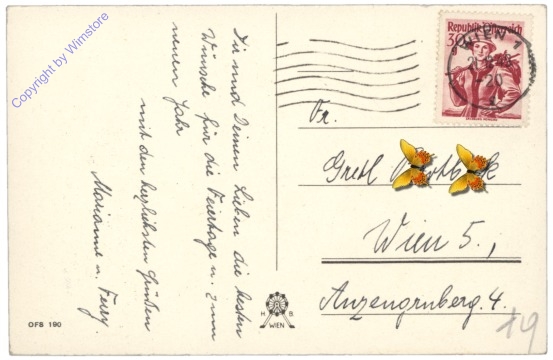 Copyright by Wimstore
Dir und Deinen Lieben die besten
Wünsche für die Feiertage u. zum
neuen Jahr
mit den herzlichsten Grüßen
Marianne u. Ferry.
OFS 190
H. B.
WIEN
Republik Österreich
30
WIEN 1
20
Fr.
Gretl
Wien 5.,
Anzengruberg. 4.
19